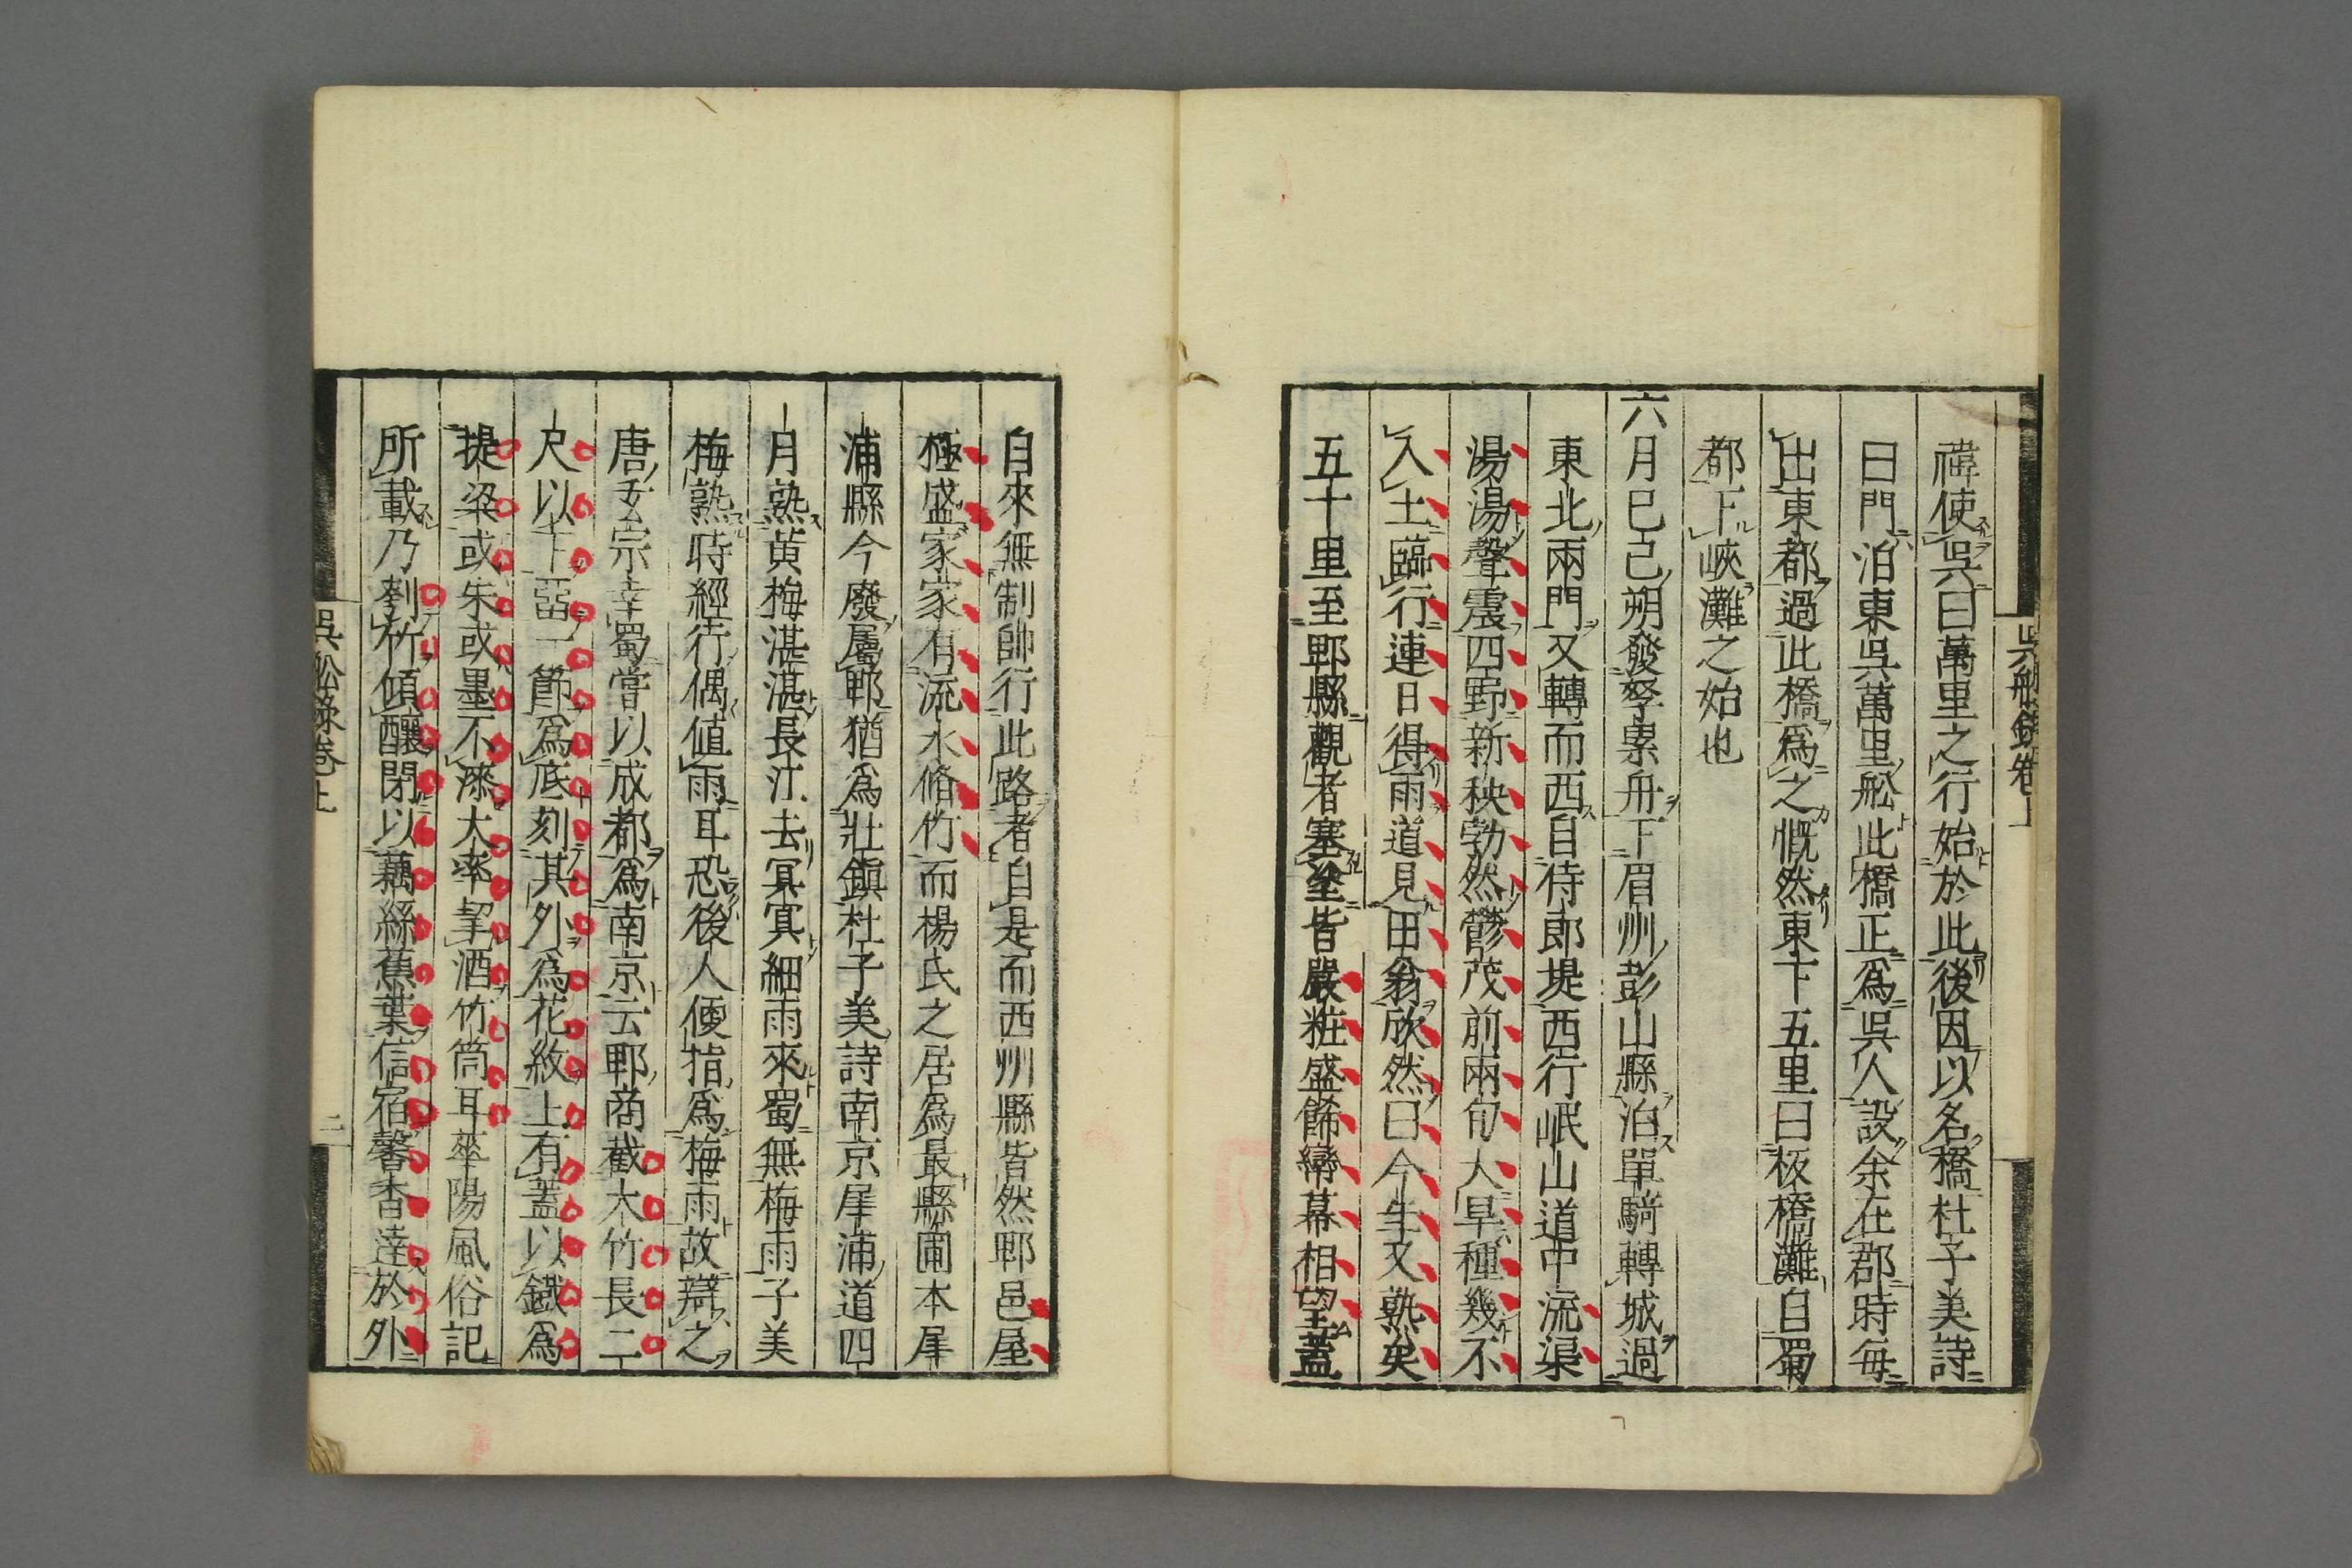 吳船錄卷上
禕使吳曰萬里之行始於此後因以名橋杜子美詩
曰門泊東吳萬里舩此橋正爲吳人設余在郡時每
出東都過此橋爲之慨然東下五里曰板橋灘自蜀
都下峽灘之始也
六月巳己朔發孥累舟下眉州彭山縣泊單騎轉城過
東北兩門又轉而西自侍郎堤西行岷山道中流渠
湯湯聲震四野新秧勃然鬱茂前兩旬大旱種幾不
入土臨行連日得雨道見田翁欣然曰今年又熟矣
五十里至郫縣觀者塞塗皆嚴粧盛飾幰幕相望蓋
自來無制帥行此路者自是而西州縣皆然郫邑屋
極盛家家有流水脩竹而楊氏之居爲最縣圃本犀
浦縣今廢屬郫猶爲壯鎭杜子美詩南京犀浦道四
月熟黃梅湛湛長江去冥冥細雨來蜀無梅雨子美
梅熟時經行偶値雨耳恐後人便指爲梅雨故辯之
唐玄宗幸蜀嘗以成都爲南京云郫商截大竹長二
尺以下畱一節爲底刻其外爲花紋上有蓋以鐵爲
提梁或朱或墨不漆大率挈酒竹筒耳華陽風俗記
所載乃刳竹傾釀閉以藕絲蕉葉信宿馨香達於外
吳舩錄卷上
二